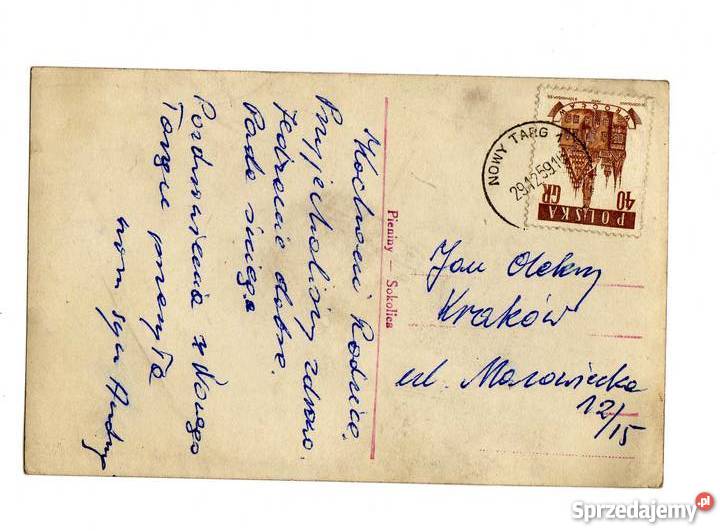 Kochani Rodzice.
Przyjechaliśmy zdrowo.
Jedzenie dobre.
Pada śnieg.
Pozdrowienia z Nowego
Targu przesyła
syn Andrzej
Pieniny — Sokolica
NOWY TARG 1
29.12.59
WROCŁAW
40
GR
POLSKA
Jan
Kraków
ul. Mazowiecka
12/15
Sprzedajemy.pl